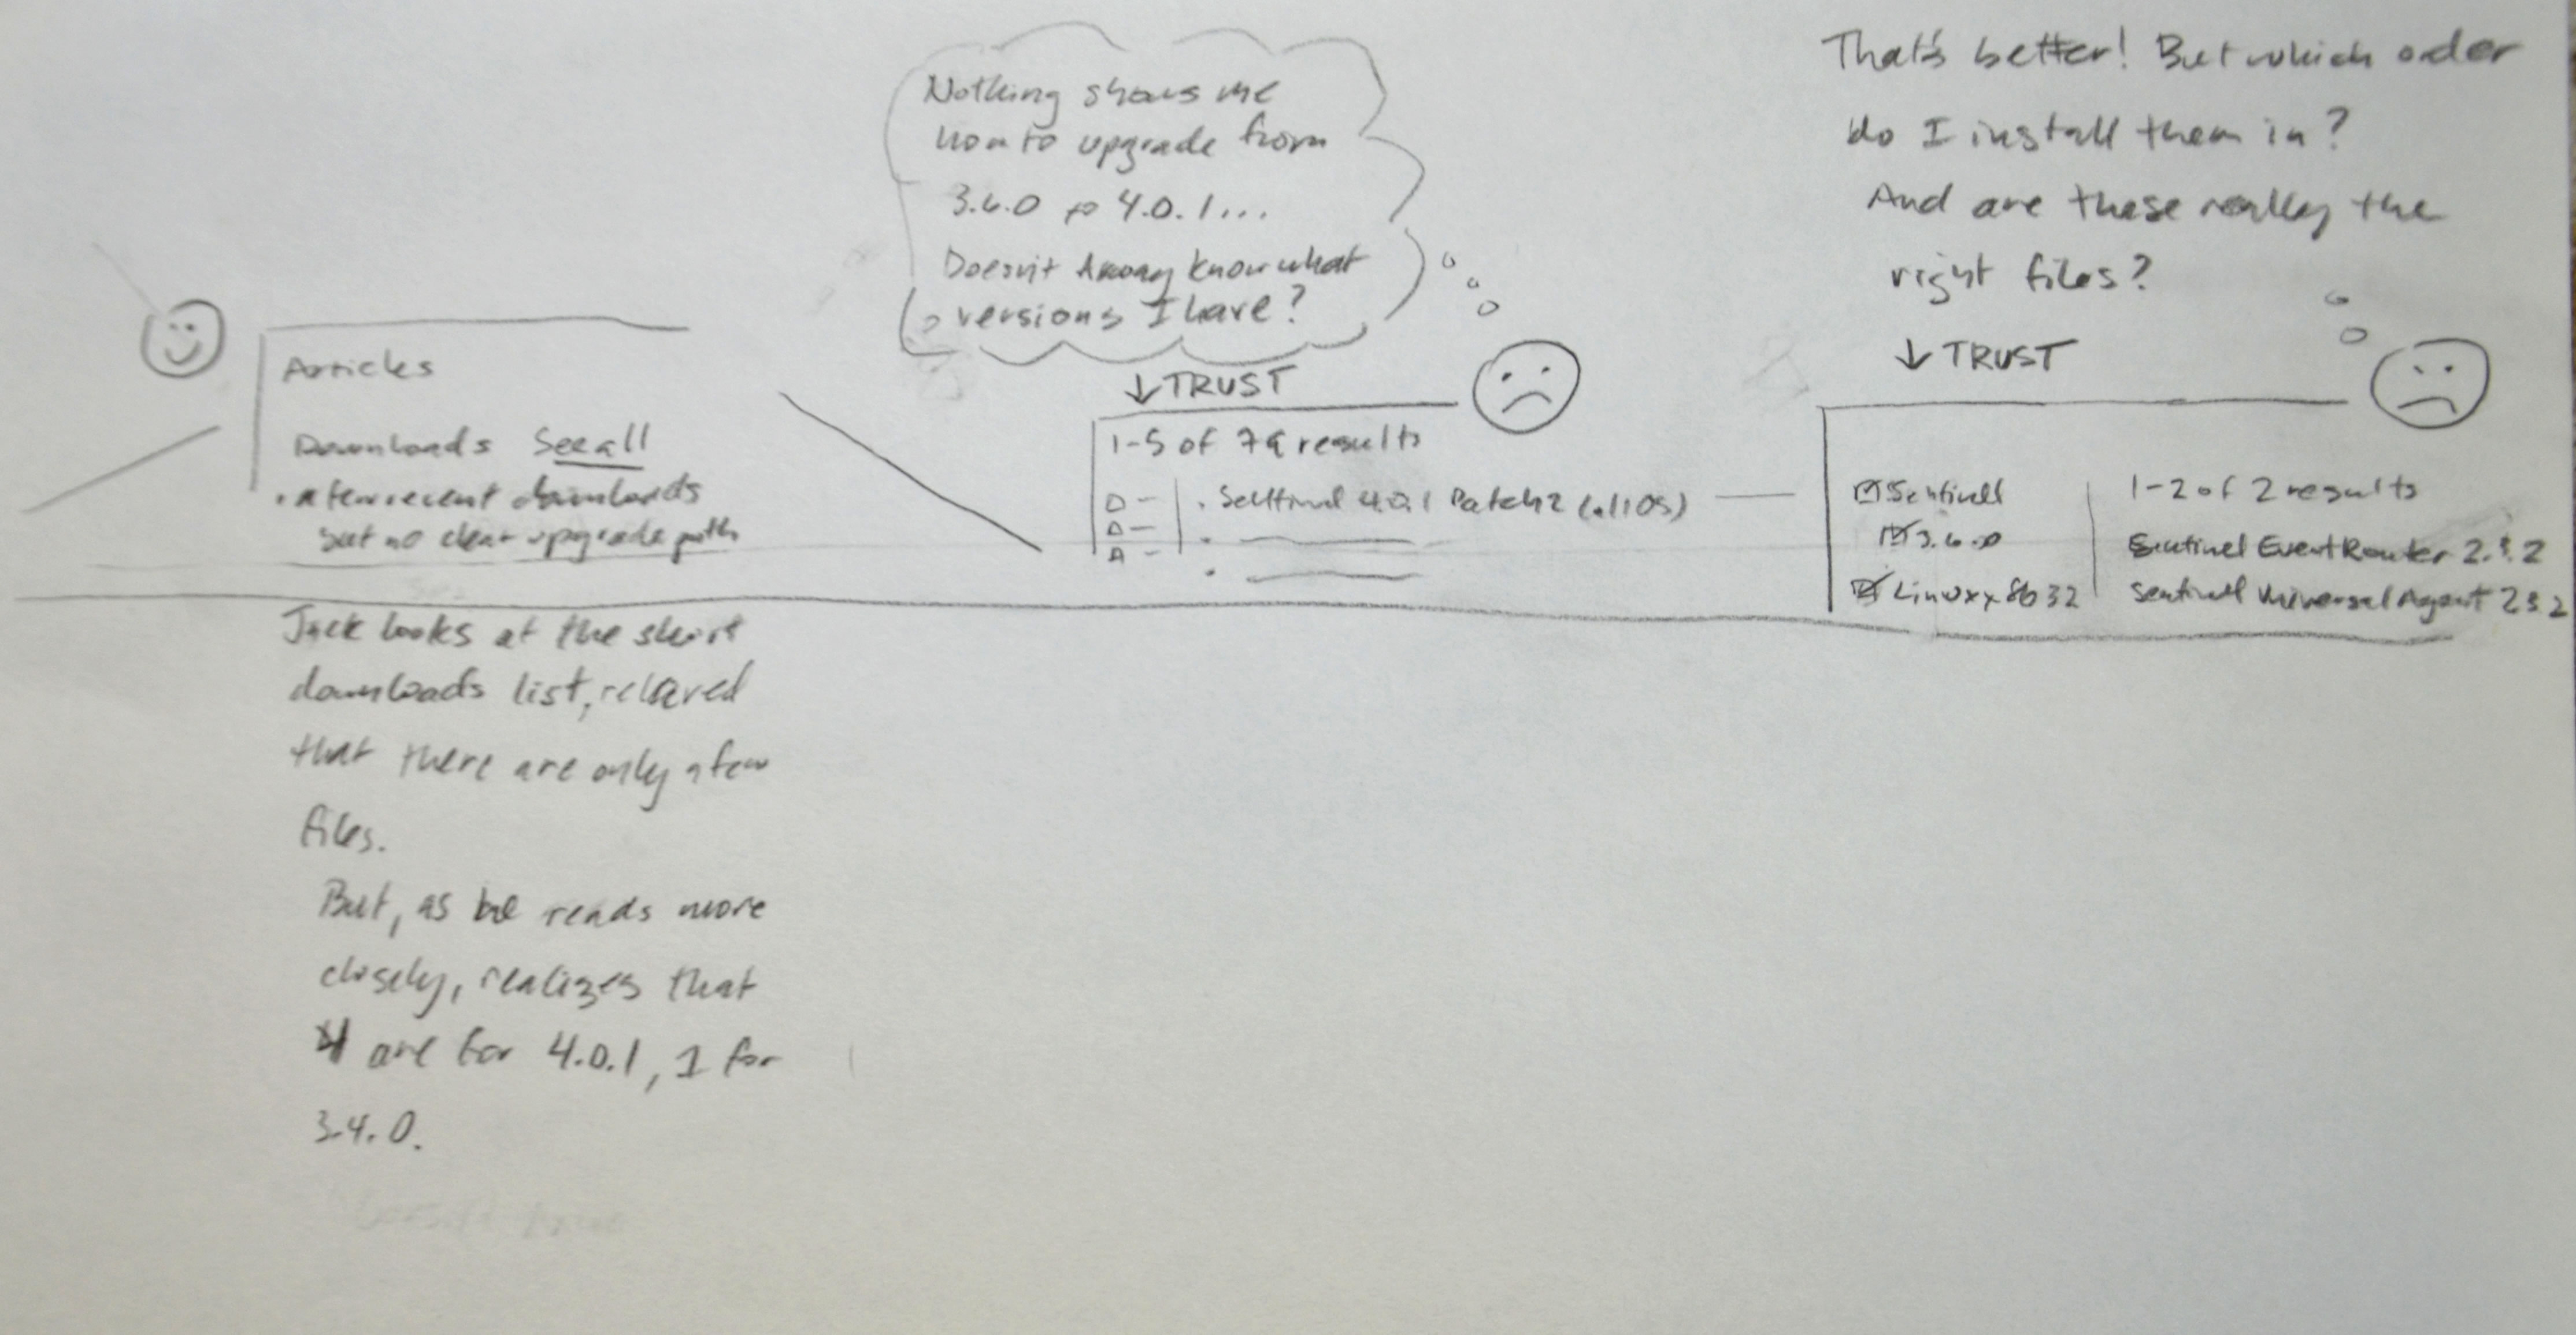 Articles
Downloads See all
• a few recent downloads
but no clear upgrade path
Jack looks at the short
downloads list, relieved
that there are only a few
files.
But, as he reads more
closely, realizes that
4 are for 4.0.1, 1 for
3.4.0.
Nothing shows me
how to upgrade from
3.6.0 to 4.0.1...
Doesn't know what
versions I have?
↓ TRUST
1-5 of 79 results
• Sentinel 4.0.1 Patch 2
That's better! But which order
do I install them in?
And are these really the
right files?
↓ TRUST
☑ Sentinel
☑ 3.6.0
☑ Linux x86 32
1-2 of 2 results
Sentinel Event Router 2.3.2
Sentinel Universal Agent 2.3.2